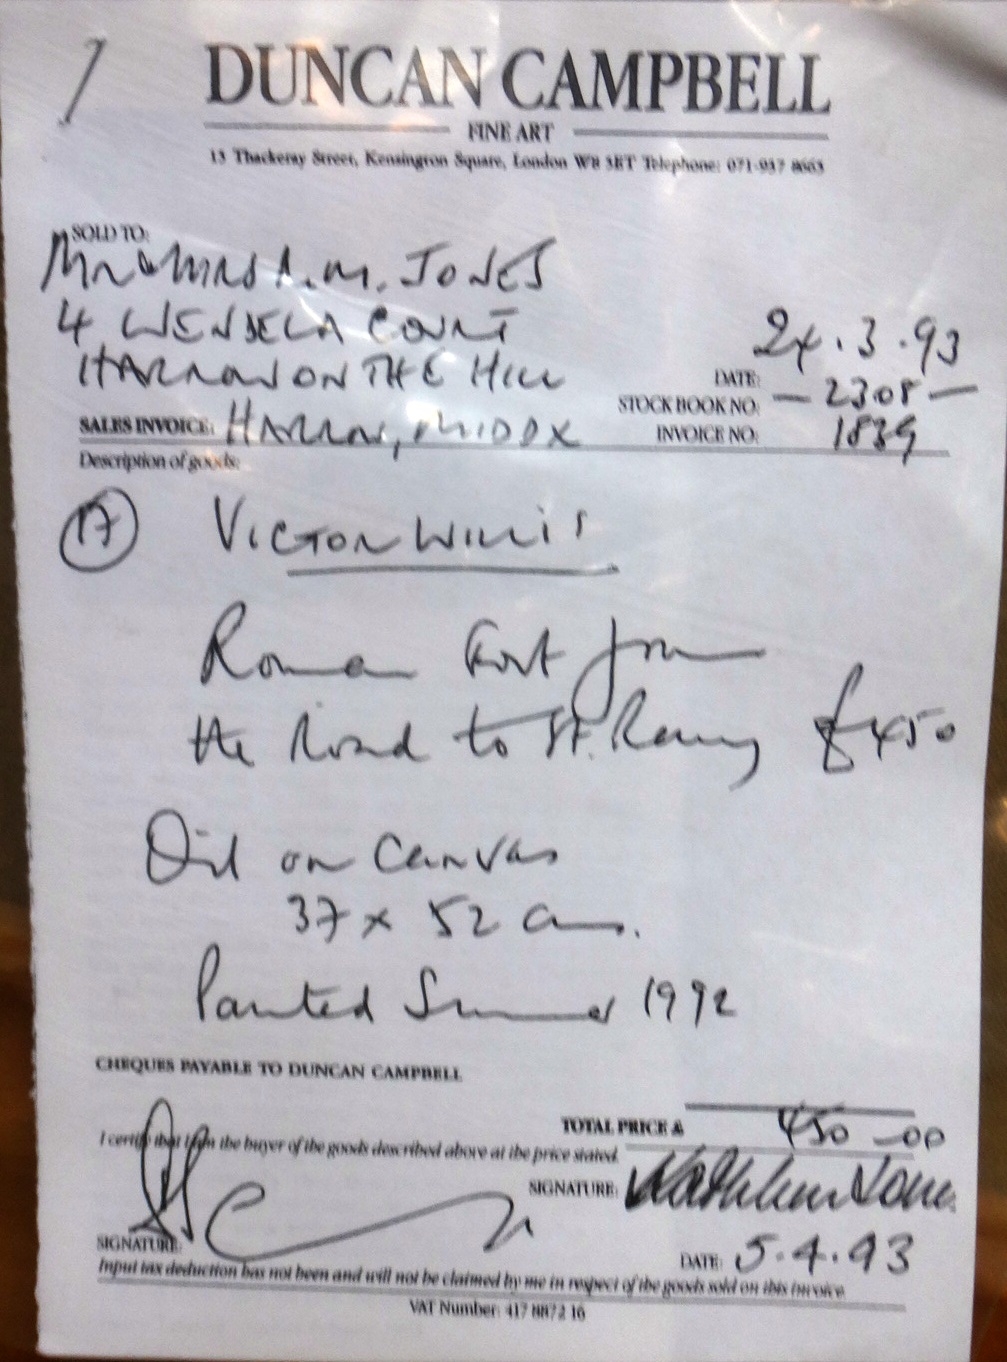 DUNCAN CAMPBELL
FINE ART
15 Thackeray Street, Kensington Square, London W8 5ET Telephone: 071-937 8665
SOLD TO:
Mr & MRS A.M. JONES
4 WENDELA COURT
HARROW ON THE HILL
24.3.93
DATE:
STOCK BOOK NO: — 2308 —
SALES INVOICE: HARROW, MIDDX
INVOICE NO: 1839
Description of goods:
17 VICTOR WILLIS
Roman Fort from
the Road to St. Remy £450
Oil on Canvas
37 x 52 cms.
Painted Summer 1992
CHEQUES PAYABLE TO DUNCAN CAMPBELL
TOTAL PRICE £ 450-00
I certify that I am the buyer of the goods described above at the price stated.
SIGNATURE: Kathleen Jones
SIGNATURE:
DATE: 5.4.93
Input tax deduction has not been and will not be claimed by me in respect of the goods sold on this invoice
VAT Number: 417 8872 16